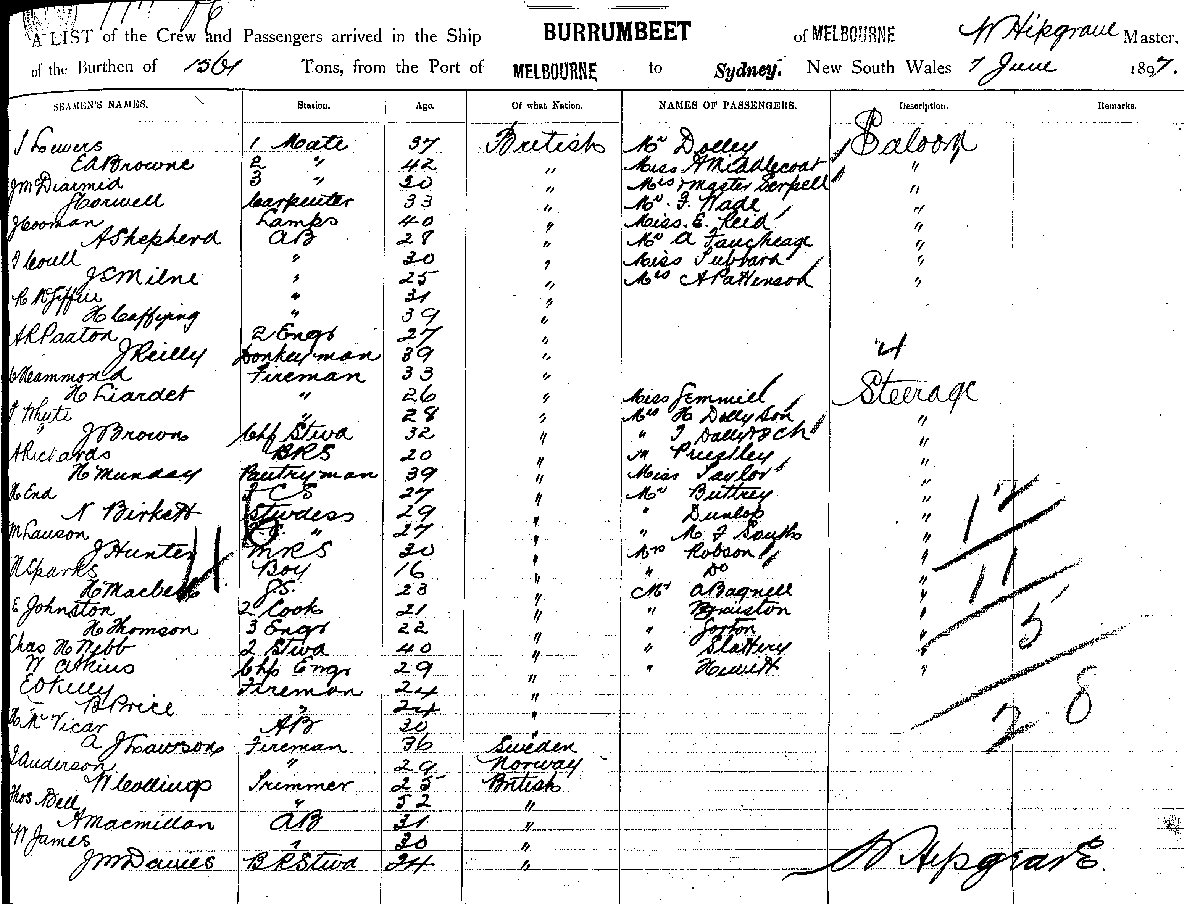 A LIST of the Crew and Passengers arrived in the Ship BURRUMBEET of MELBOURNE W Hipgrave Master,
of the Burthen of 1561 Tons, from the Port of MELBOURNE to Sydney. New South Wales 7 June 1897.
SEAMEN'S NAMES. Station. Age. Of what Nation. NAMES OF PASSENGERS. Description. Remarks.
1 Mate 37 British Mr Dolley Saloon
EA Browne 2 " 42 " Miss A Middlecoat "
J McDiarmid 3 " 30 " Mrs & Master Serpell "
J Horwell Carpenter 33 " Mr J Wade "
J Cooman Lamps 40 " Miss E. Reid "
A Shepherd AB 28 " Mr A "
J Coull " 30 " Miss "
J S Milne " 25 " Mrs A Pattenson "
" 31 "
" 39 "
AR Paaton 2 Engr 27 "
J Reilly Donkeyman 39 " 4
C Hammond Fireman 33 " Steerage
H Liardet " 26 " Miss Gemmill
J Whyte " 28 " Mrs H Dolly Son "
J Brown Chf Stwd 32 " " J Dolly & ch "
A Richards BRS 20 " M Priestley "
H Munday Pantryman 39 " Miss Taylor "
H End 27 " Mr Buttrey "
N Birkett Stwdess 29 " " Dunlop " 12
M Lauson " 27 " " "
J Hunter MRS 30 " Mrs Robson "
H Sparks Boy 16 " " Do " 11
H Macbeth JS. 23 " Mr A Bagnell "
E Johnston 2 Cook 21 " " "
H Thomson 3 Engr 22 " " Gorton " 5
Chas H Nebb 2 Stwd 40 " " Slattery "
W Atkins Chf Engr 29 " " Hewitt "
E O'Kelly Fireman 24 "
B Price " 24 " 28
H McVicar AB 30 "
A J Lawson Fireman 36 Sweden
J Anderson " 29 Norway
W Collings Trimmer 25 British
Thos Bell " 52 "
A Macmillan AB 31 "
W James " 30 "
J M Davies BR Stwd 24 "
W Hipgrave